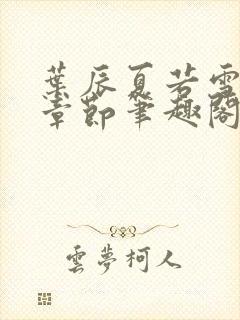 葉辰夏若雪
章節筆趣閣
雲夢柯人